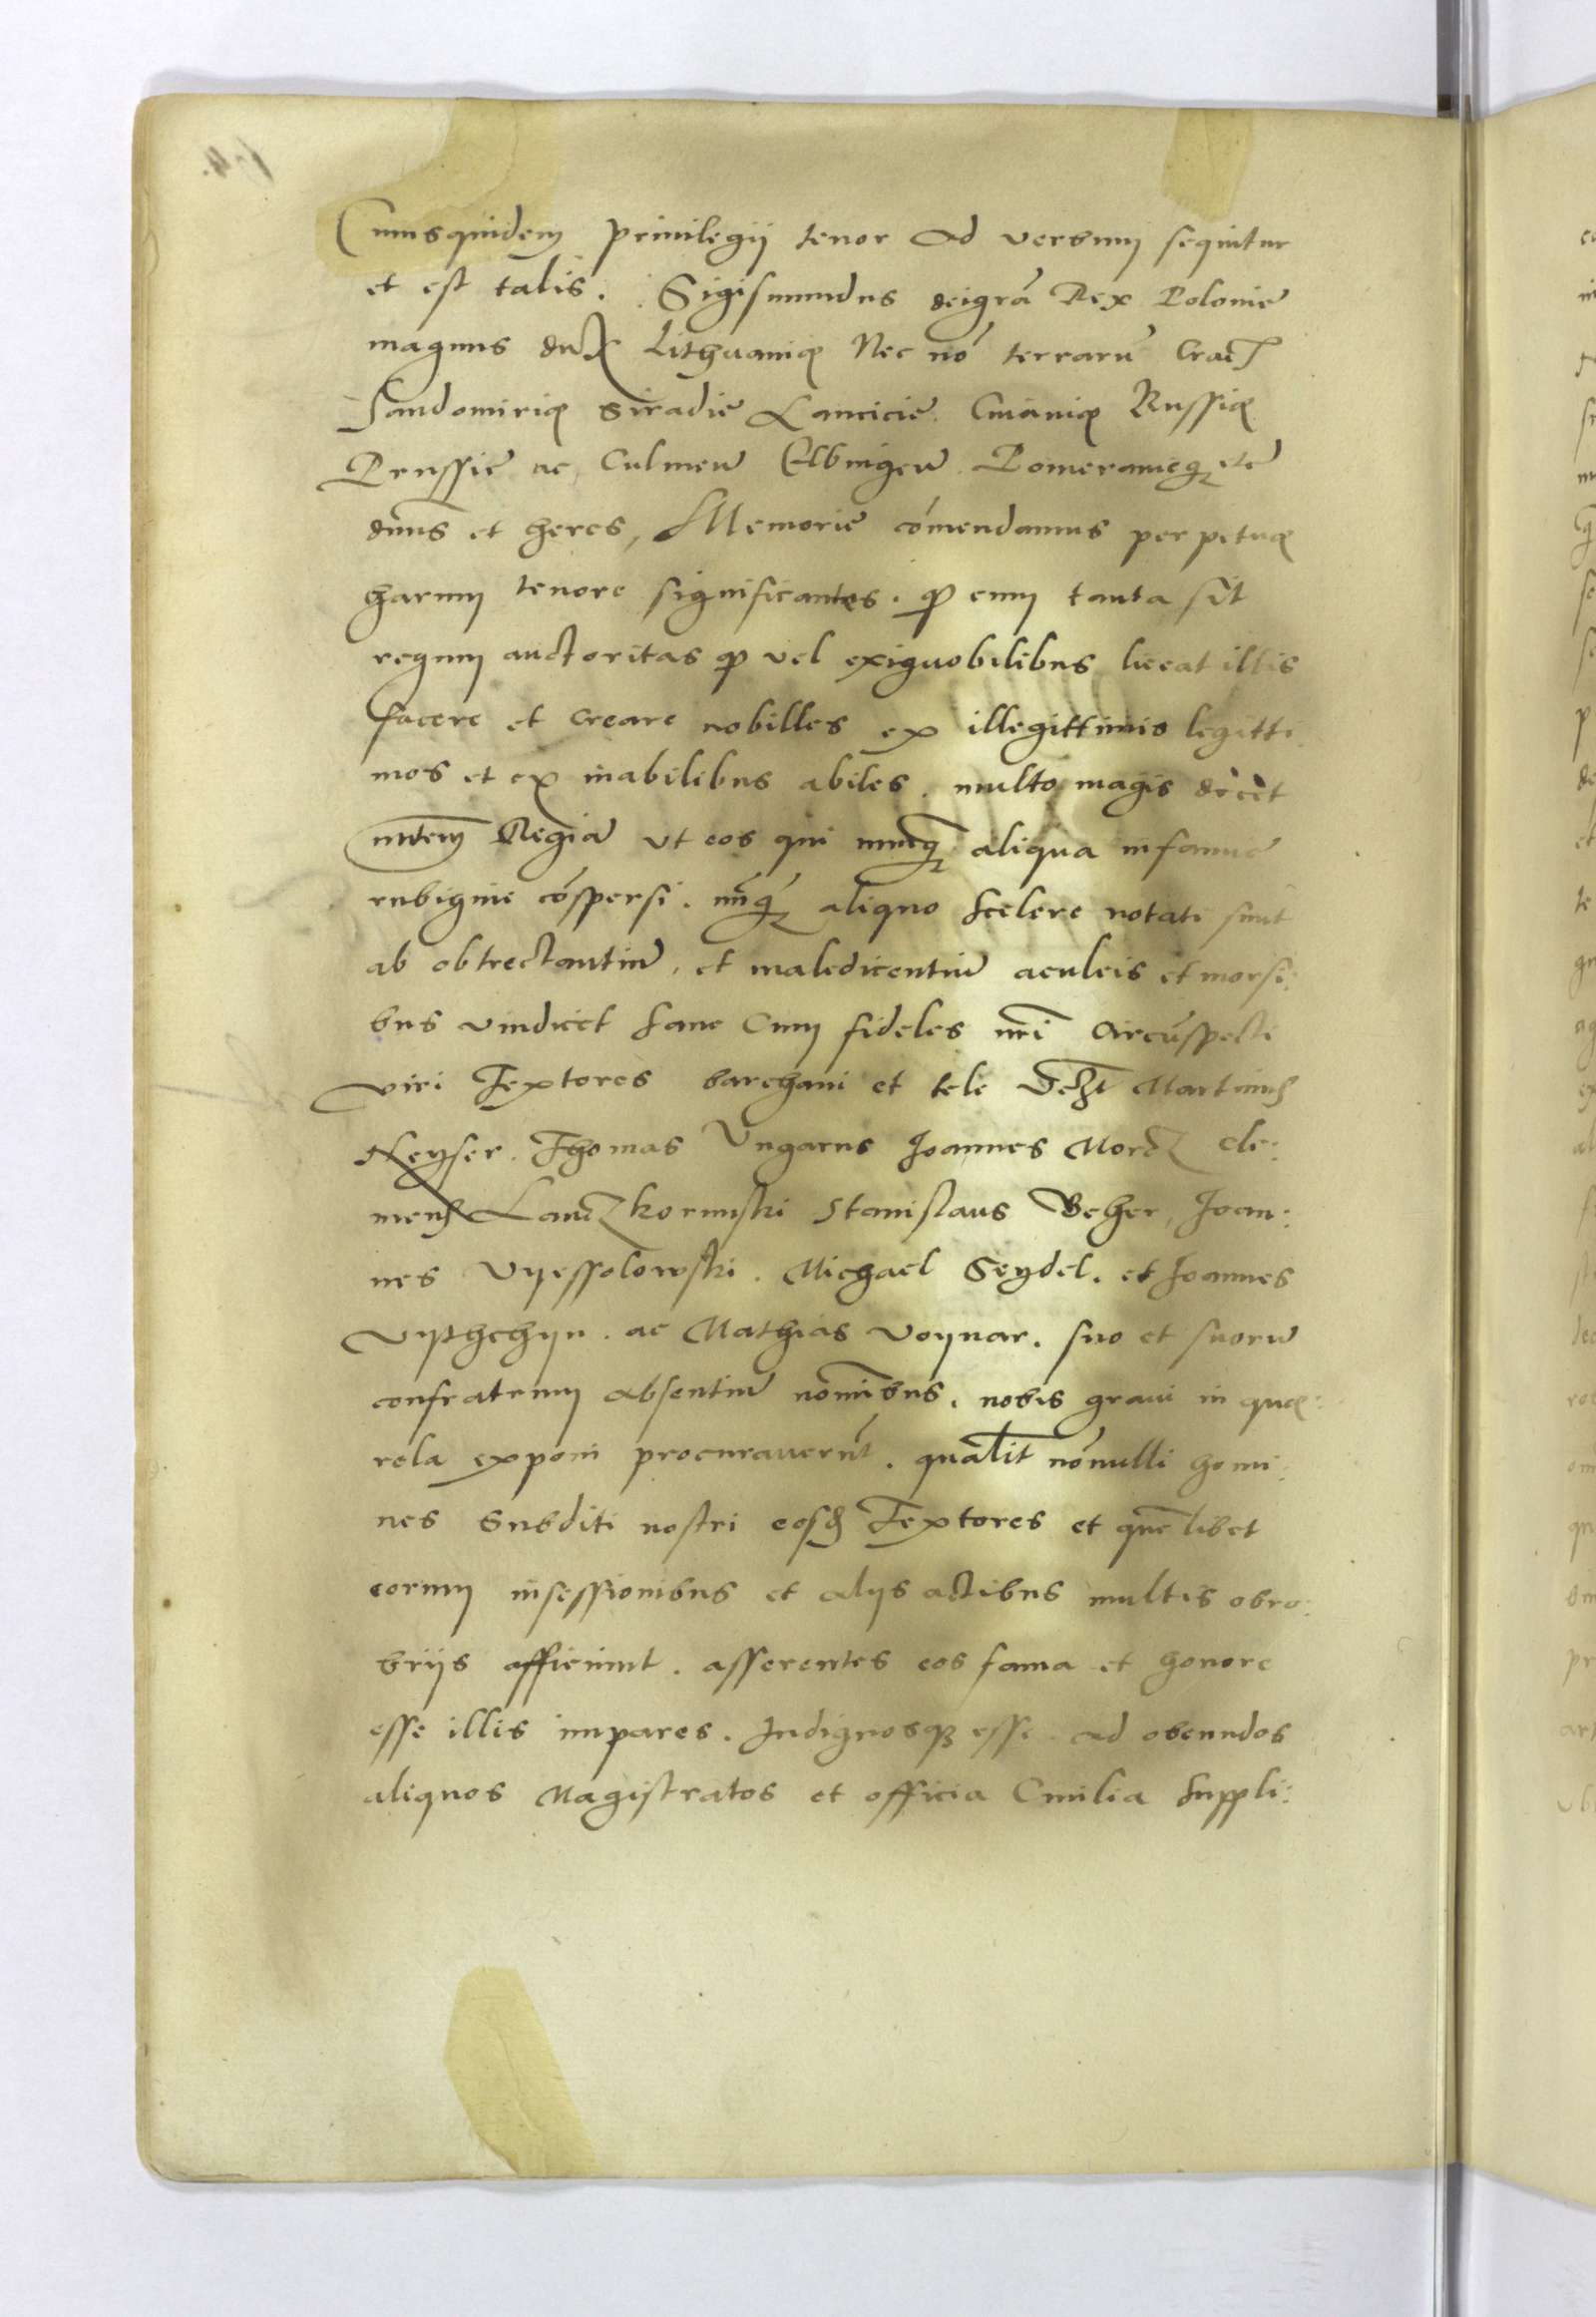 Cuiusquidem priuilegij tenor ad verbum sequitur
et est talis. Sigismundus deigrã Rex Polonie
magnus dux Lithuanię Nec nõ terrarũ Crac̃
Sandomirię Siradie Lancicie Cuiauię Russię
Prussie ac Culmeñ Elbingeñ Pomeranieq₃ etc̃
dñus et heres, Memorie cõmendamus perpetuę
harum tenore significantes. ꝙ cum tanta sit
regum auctoritas ꝙ vel exignobilibus liceat illis
facere et creare nobilles ex illegittimis legitti:
mos et ex inabilibus abiles. multo magis decet
mñtem Regiã ut eos qui nunq̃₃ aliqua infamie
rubigine cõspersi. nũq̃₃ aliquo scelere notati sunt
ab obtrectantiũ, et maledicentiũ aculeis et morsi:
bus vindicet Sane Cum fideles nr̃i Circũspecti
viri Textores barchani et tele Martinus
Keyser. Thomas Vngarus Joannes Morcz Cle:
mens Lanczkorunski Stanislaus Beher, Joan:
nes Vyessolowski. Michael Seydel. et Joannes
Vythchyn. ac Mathias Voynar. suo et suorũ
confratrum absentiũ nomĩbus. nobis graui in quę:
rela exponi procurauerũt. qualit̃ nõnulli homi:
nes Subditi nostri eosd̃ Textores et quẽlibet
eorum insessionibus et alijs actibus multis obro:
brijs afficiunt. asserentes eos fama et honore
esse illis impares. Indignosq₃ esse ad obeundos
aliquos Magistratos et officia Ciuilia Suppli: